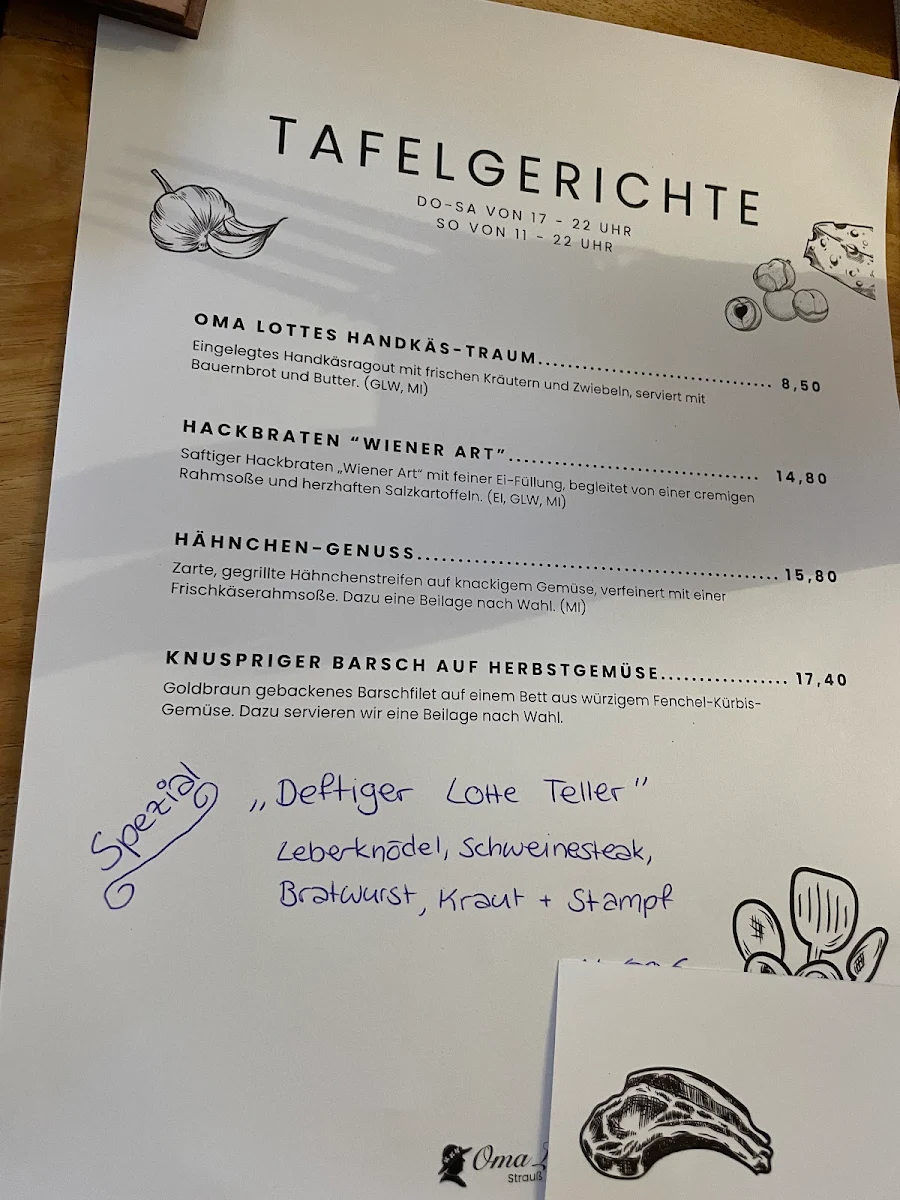 TAFELGERICHTE
DO-SA VON 17 - 22 UHR
SO VON 11 - 22 UHR
OMA LOTTES HANDKÄS-TRAUM................................. 8,50
Eingelegtes Handkäsragout mit frischen Kräutern und Zwiebeln, serviert mit
Bauernbrot und Butter. (GLW, MI)
HACKBRATEN “WIENER ART”................................... 14,80
Saftiger Hackbraten „Wiener Art“ mit feiner Ei-Füllung, begleitet von einer cremigen
Rahmsoße und herzhaften Salzkartoffeln. (EI, GLW, MI)
HÄHNCHEN-GENUSS.................................................. 15,80
Zarte, gegrillte Hähnchenstreifen auf knackigem Gemüse, verfeinert mit einer
Frischkäserahmsoße. Dazu eine Beilage nach Wahl. (MI)
KNUSPRIGER BARSCH AUF HERBSTGEMÜSE................. 17,40
Goldbraun gebackenes Barschfilet auf einem Bett aus würzigem Fenchel-Kürbis-
Gemüse. Dazu servieren wir eine Beilage nach Wahl.
Spezial
„Deftiger Lotte Teller"
Leberknödel, Schweinesteak,
Bratwurst, Kraut + Stampf
Oma
Strauß